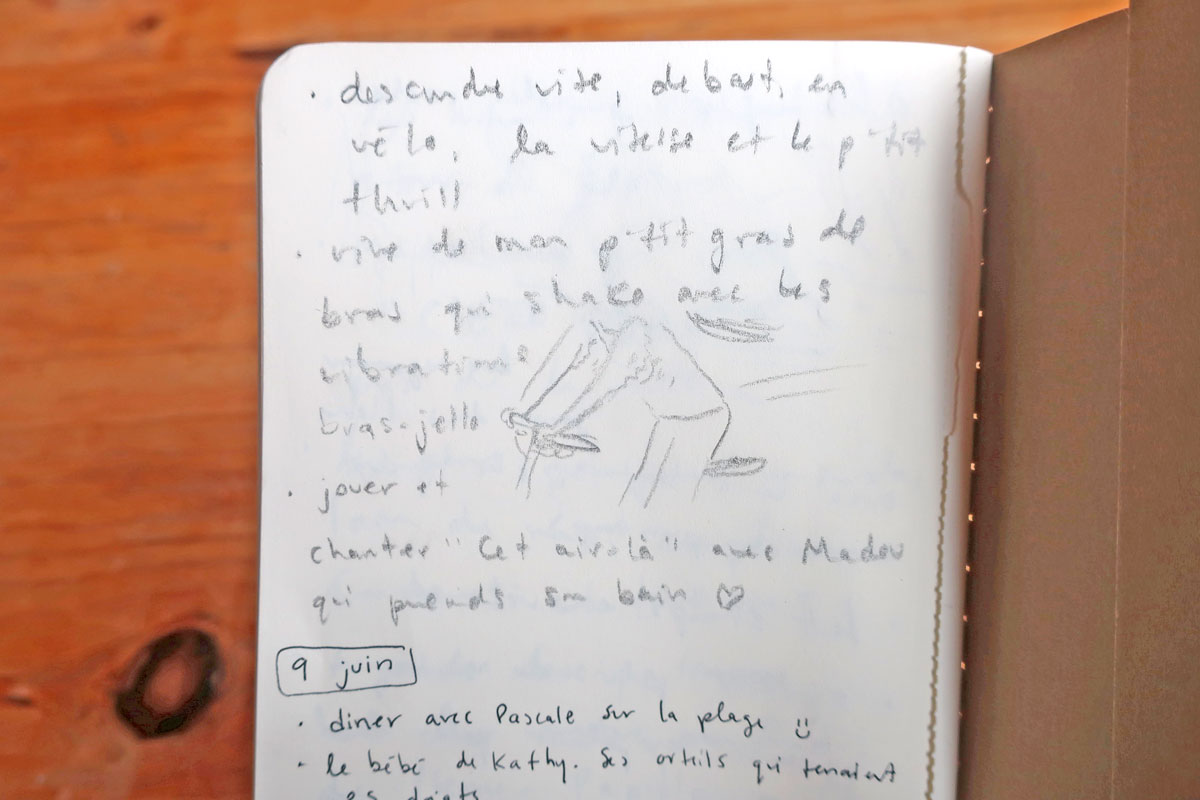 • descendre vite, debout, en
vélo, la vitesse et le p'tit
thrill
• rire de mon p'tit gras de
bras qui shake avec les
vibrations
bras-jello
• jouer et
chanter "Cet air-là" avec Madou
qui prends son bain ♡
9 juin
• diner avec Pascale sur la plage :)
• le bébé de Kathy. Ses orteils qui tenaient
doigts